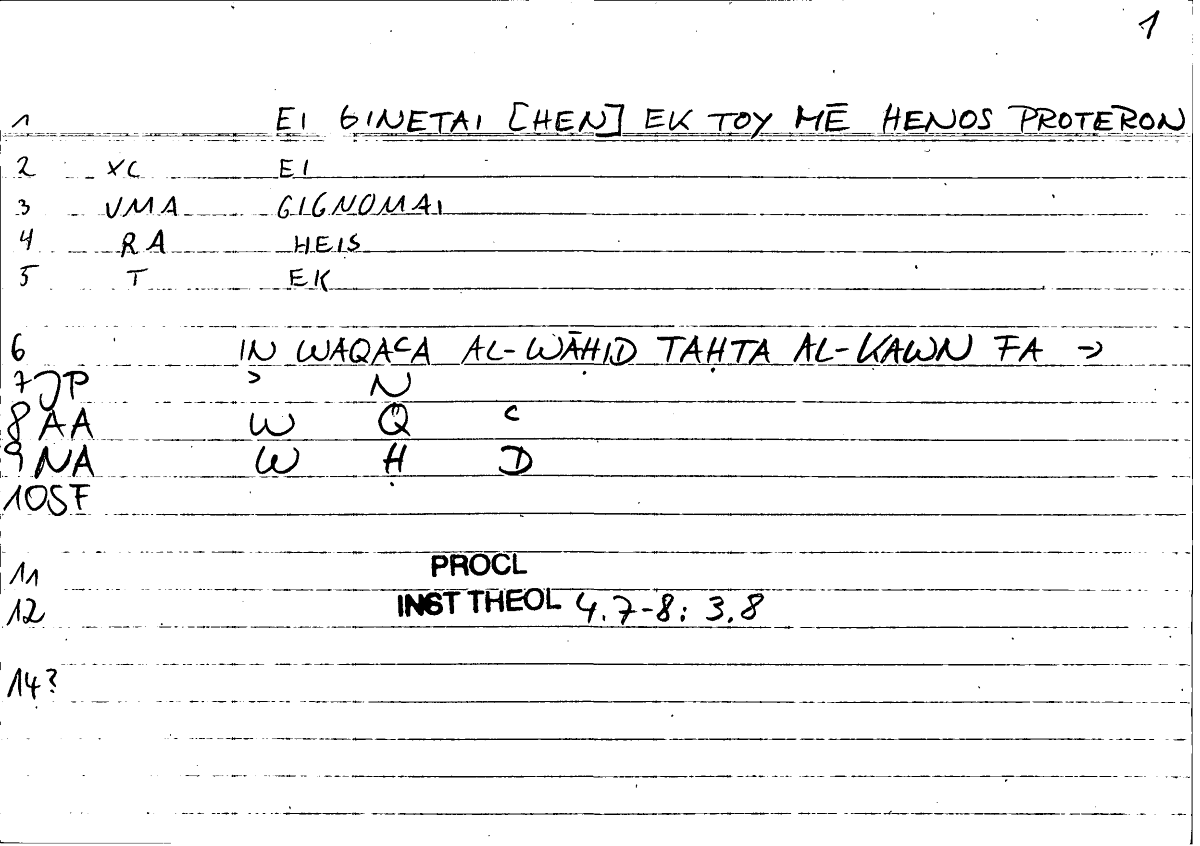 1
1 EI GINETAI [HEN] EK TOY MĒ HENOS PROTERON
2 XC EI
3 VMA GIGNOMAI
4 RA HEIS
5 T EK
6 IN WAQAᶜA AL-WĀḤID TAḤTA AL-KAWN FA →
7 JP ʾ N
8 AA W Q ᶜ
9 NA W Ḥ D
10 SF
11 PROCL
12 INST THEOL 4.7-8: 3.8
14?